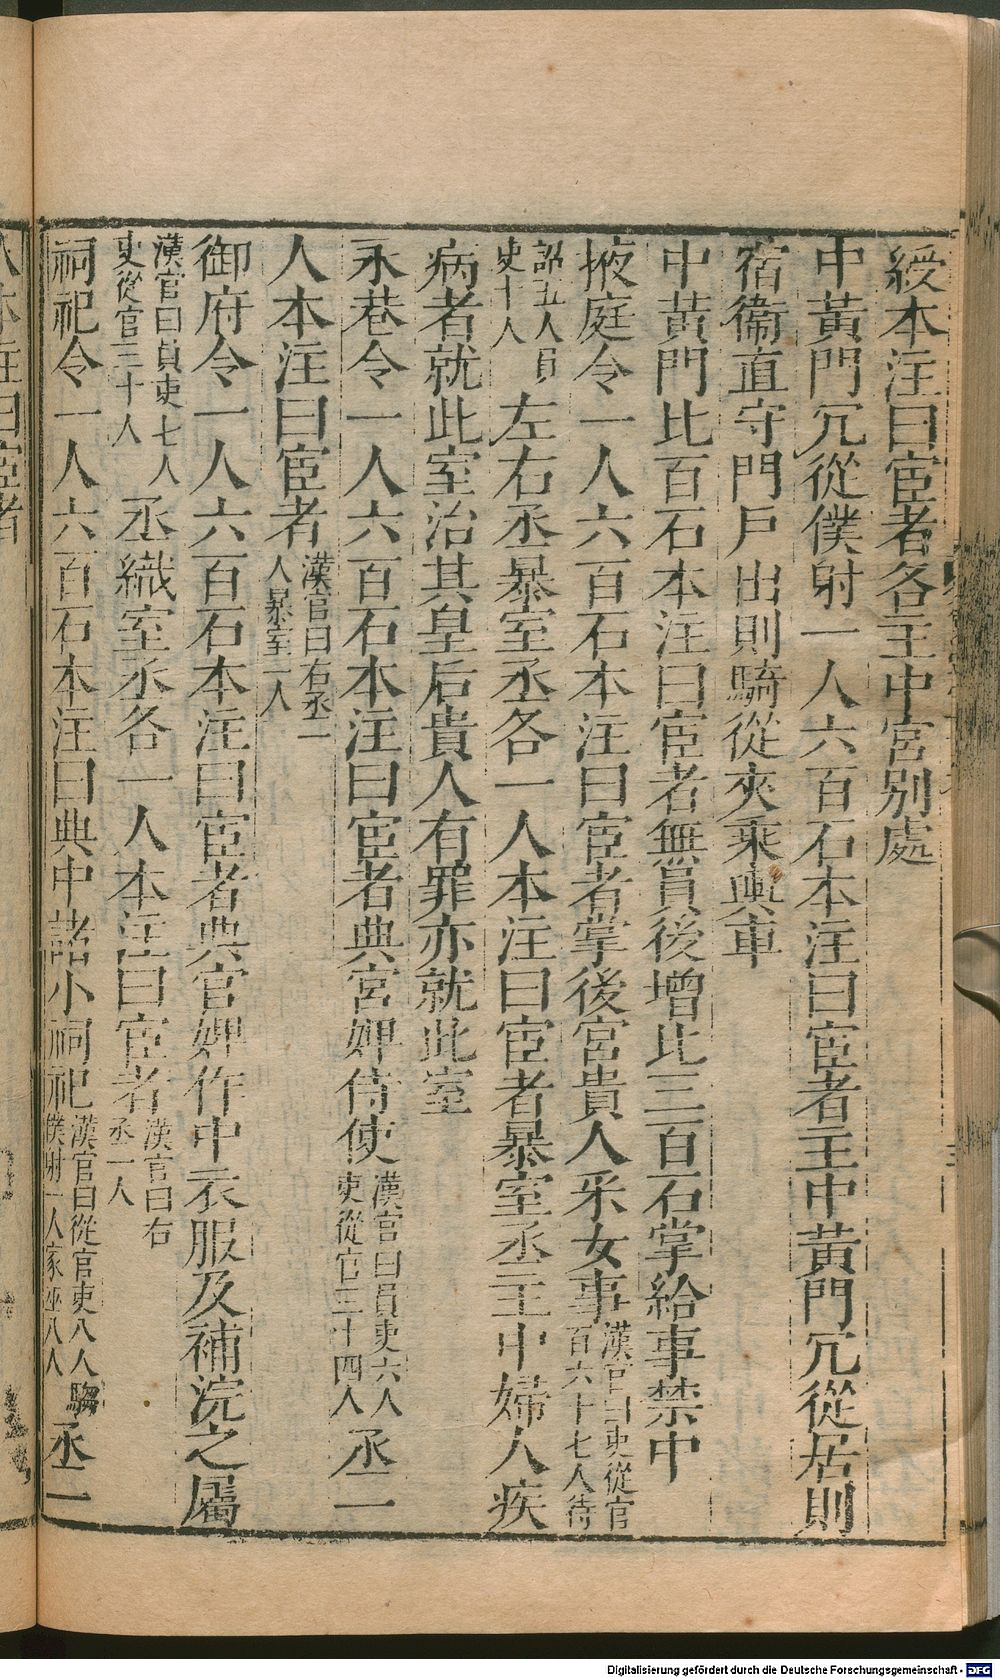 綬本注曰宦者各主中宮别處
中黃門冗從僕射一人六百石本注曰宦者主中黃門冗從居則
宿衞直守門戶出則騎從夾乘輿車
中黃門比百石本注曰宦者無員後增比三百石掌給事禁中
掖庭令一人六百石本注曰宦者掌後宮貴人釆女事漢官曰吏從官百六十七人待
詔五人員吏十人左右丞暴室丞各一人本注曰宦者暴室丞主中婦人疾
病者就此室治其皇后貴人有罪亦就此室
永巷令一人六百石本注曰宦者典宮婢侍使漢官曰員吏六人吏從官三十四人丞一
人本注曰宦者漢官曰右丞一人暴室一人
御府令一人六百石本注曰宦者典官婢作中衣服及補浣之屬
漢官曰員吏七人吏從官三十人丞織室丞各一人本注曰宦者漢官曰右丞一人
祠祀令一人六百石本注曰典中諸小祠祀漢官曰從官吏八人騶僕射一人家巫八人丞一
人本注曰宦者
Digitalisierung gefördert durch die Deutsche Forschungsgemeinschaft - DFG